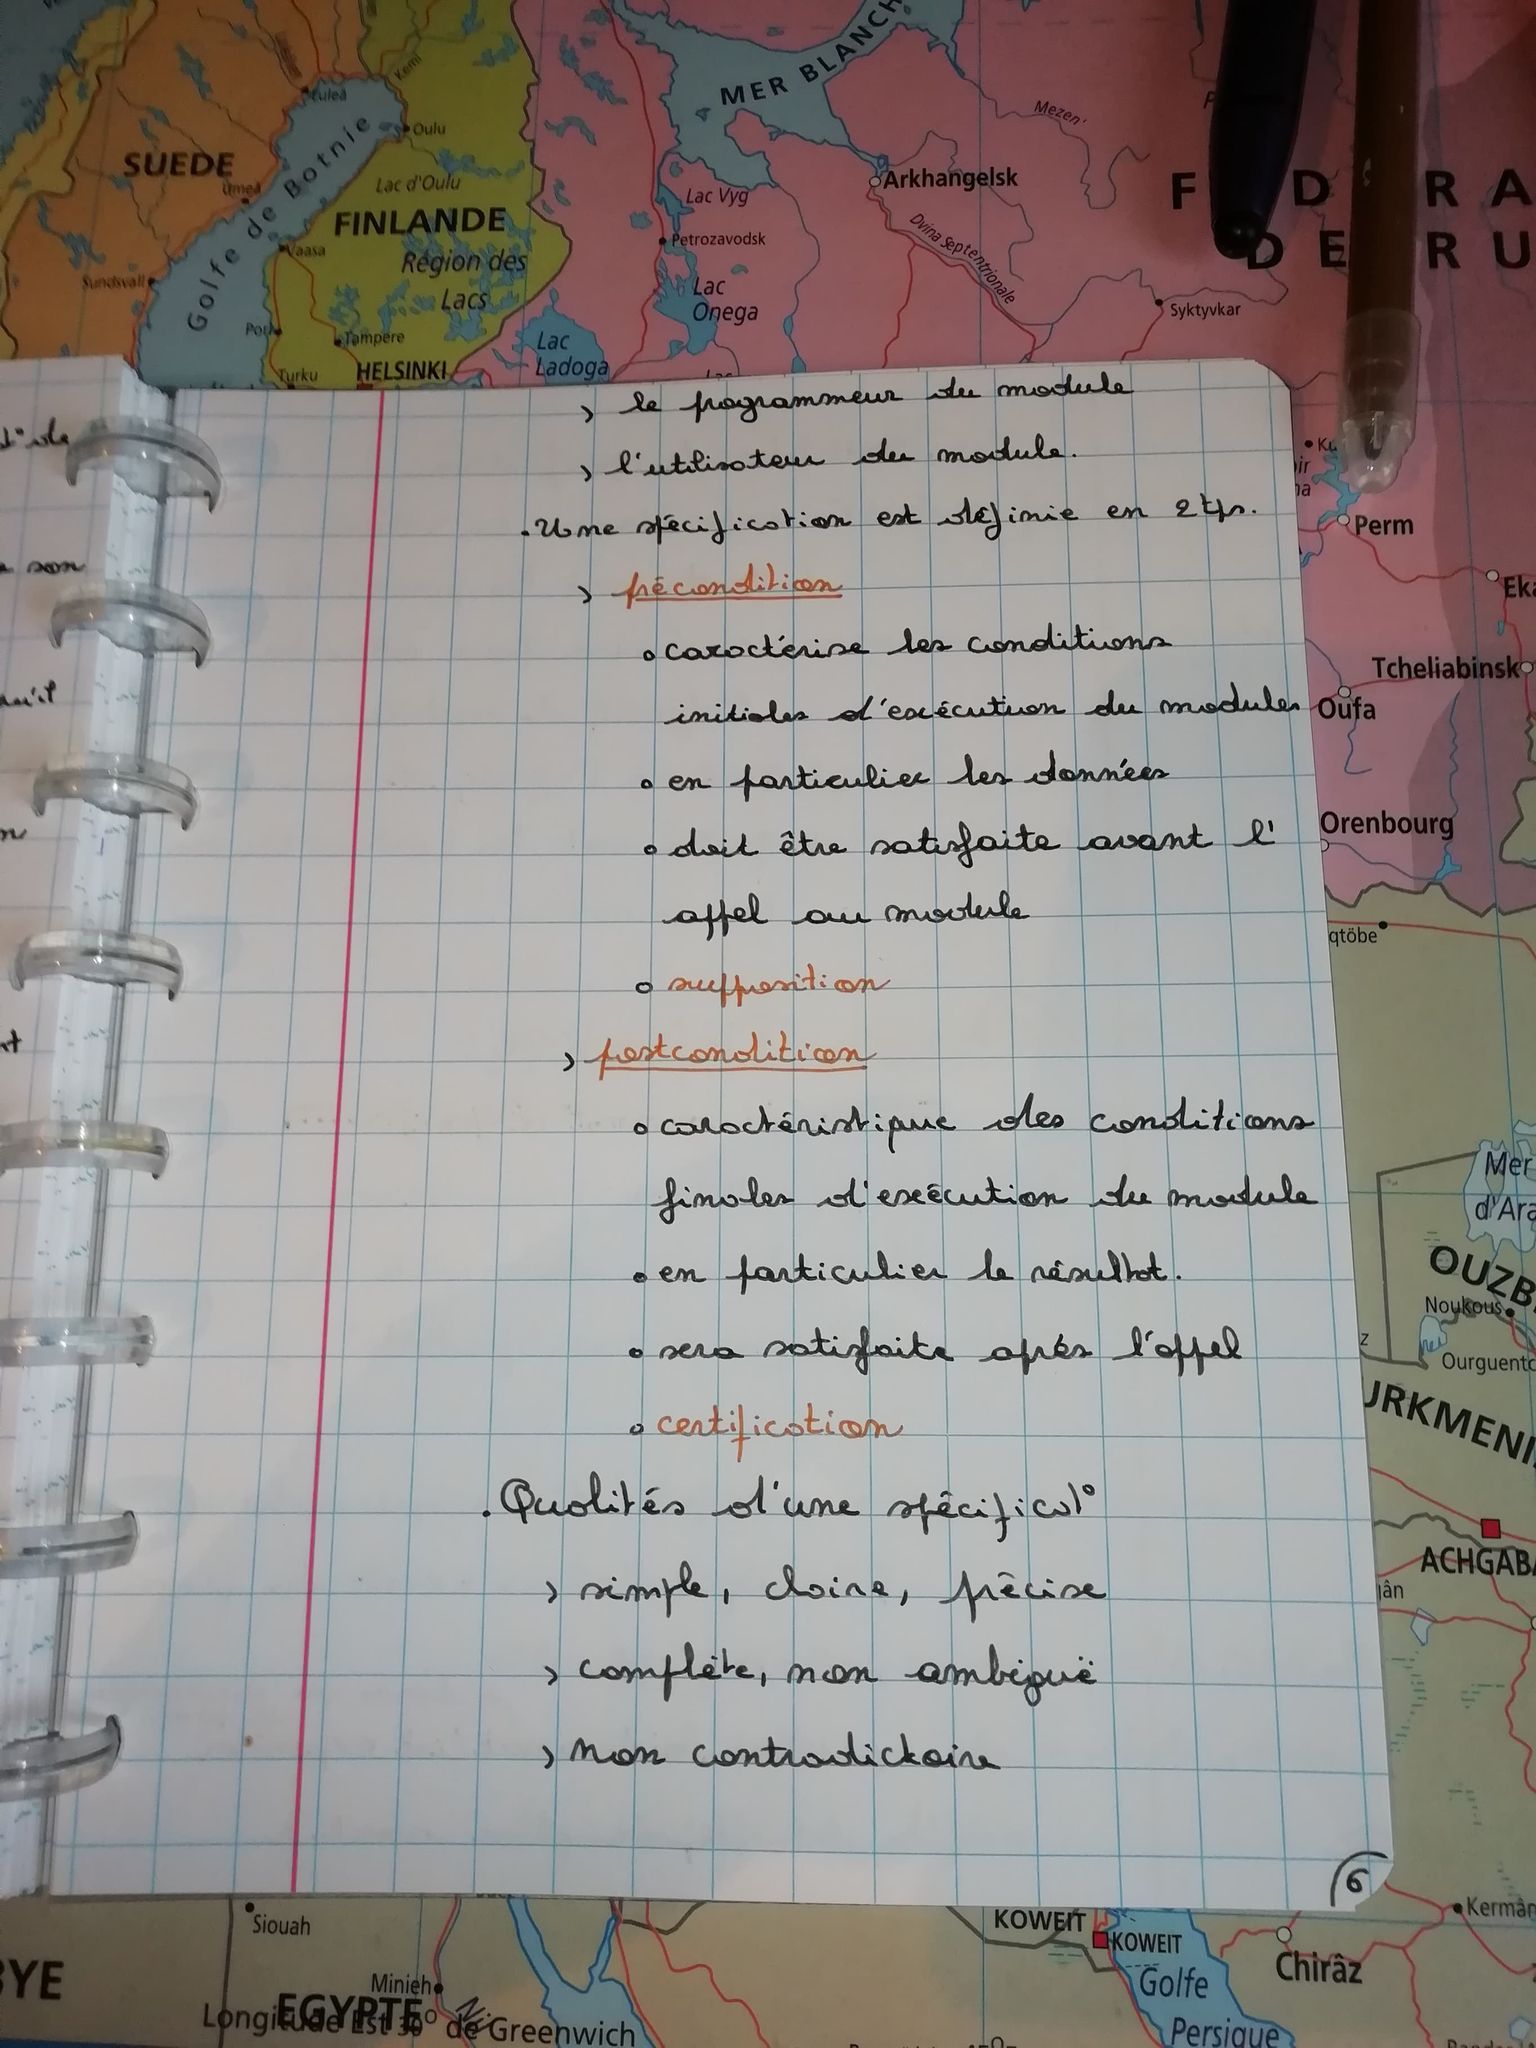 MER BLANCH
Kemi
Luleå
Oulu
SUEDE
Golfe de Botnie
Umeå
Lac d'Oulu
FINLANDE
Vaasa
Région des
Lacs
Sundsvall
Pori
Tampere
Turku
HELSINKI
Lac Vyg
Petrozavodsk
Lac
Onega
Lac
Ladoga
Arkhangelsk
Mezen'
Dvina Septentrionale
Syktyvkar
F D RA
DE RU
› le programmeur du module
› l'utilisateur du module.
. Une spécification est définie en 2 tps.
› précondition
o caractérise les conditions
initiales d'exécution du modules
o en particulier les données
o doit être satisfaite avant l'
appel au module
o supposition
› postcondition
o caractéristique des conditions
finales d'exécution du module
o en particulier le résultat.
o sera satisfaite après l'appel
o certification
. Qualités d'une spécificat°
› simple, claire, précise
› complète, non ambiguë
› non contradictoire
6
de
son
qu'il
Perm
Eka
Tcheliabinsk
Oufa
Orenbourg
qtöbe
Mer
d'Ara
OUZB
Noukous
Ourguentc
URKMENI
ACHGABA
Kermân
Siouah
BYE
Minieh
EGYPTE
Nil
Longitude Est 30° de Greenwich
KOWEIT
KOWEIT
Golfe
Persique
Chirâz